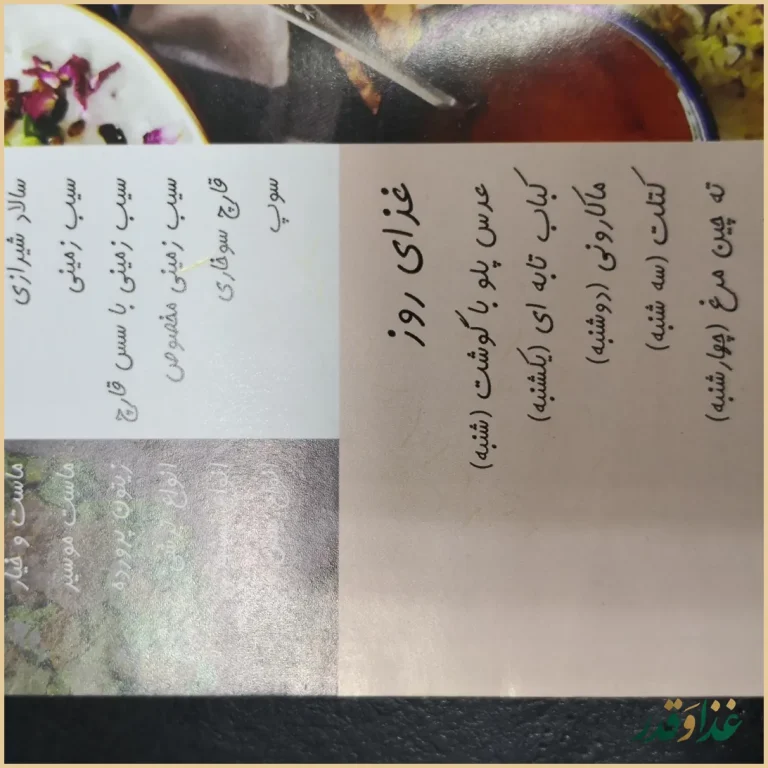 غذای روز
عدس پلو با گوشت (شنبه)
کباب تابه ای (یکشنبه)
ماکارونی (دوشنبه)
کتلت (سه شنبه)
ته چین مرغ (چهارشنبه)
سوپ
قارچ سوخاری
سیب زمینی مخصوص
سیب زمینی با سس قارچ
سیب زمینی
سالاد شیرازی
انواع
زیتون پرورده
ماست موسیر
ماست و خیار
غذا و قدر